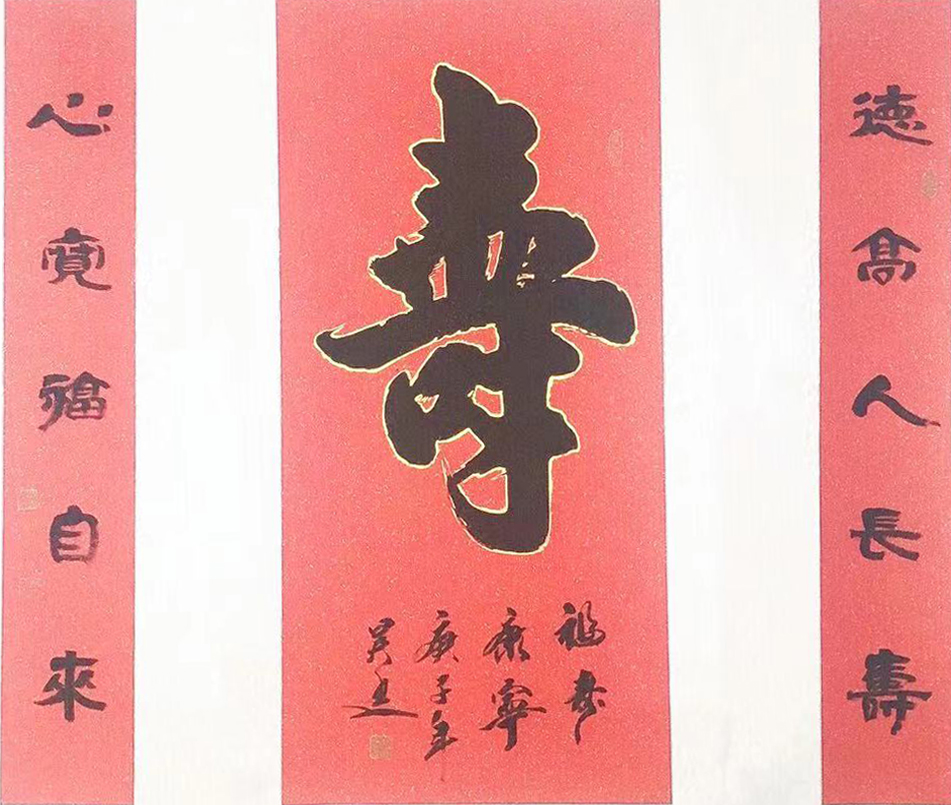 德高人長壽
壽
福壽
康寧
庚子年
吴
心寬福自來